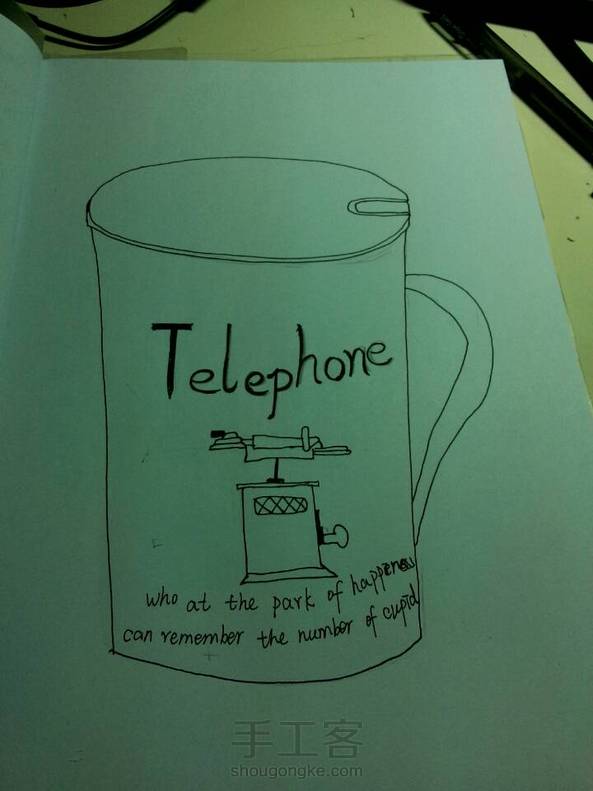 Telephone
who at the park of happeness
can remember the number of cupid
手工客
shougongke.com